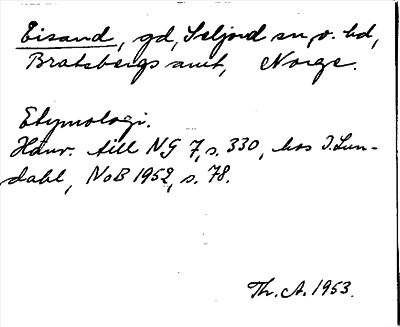 Eisand, gd, Seljord sn o. hd,
Bratsbergs amt, Norge.
Etymologi.
Hänv. till NG 7, s. 330, hos I. Lun-
dahl, NoB 1952, s. 78.
Th. A. 1953.